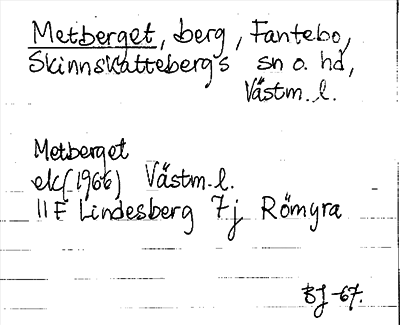 Metberget, berg, Fantebo,
Skinnskattebergs sn o. hd,
Västm. l.
Metberget
ek (1966) Västm. l.
11 F Lindesberg 7j Römyra
BJ -67.